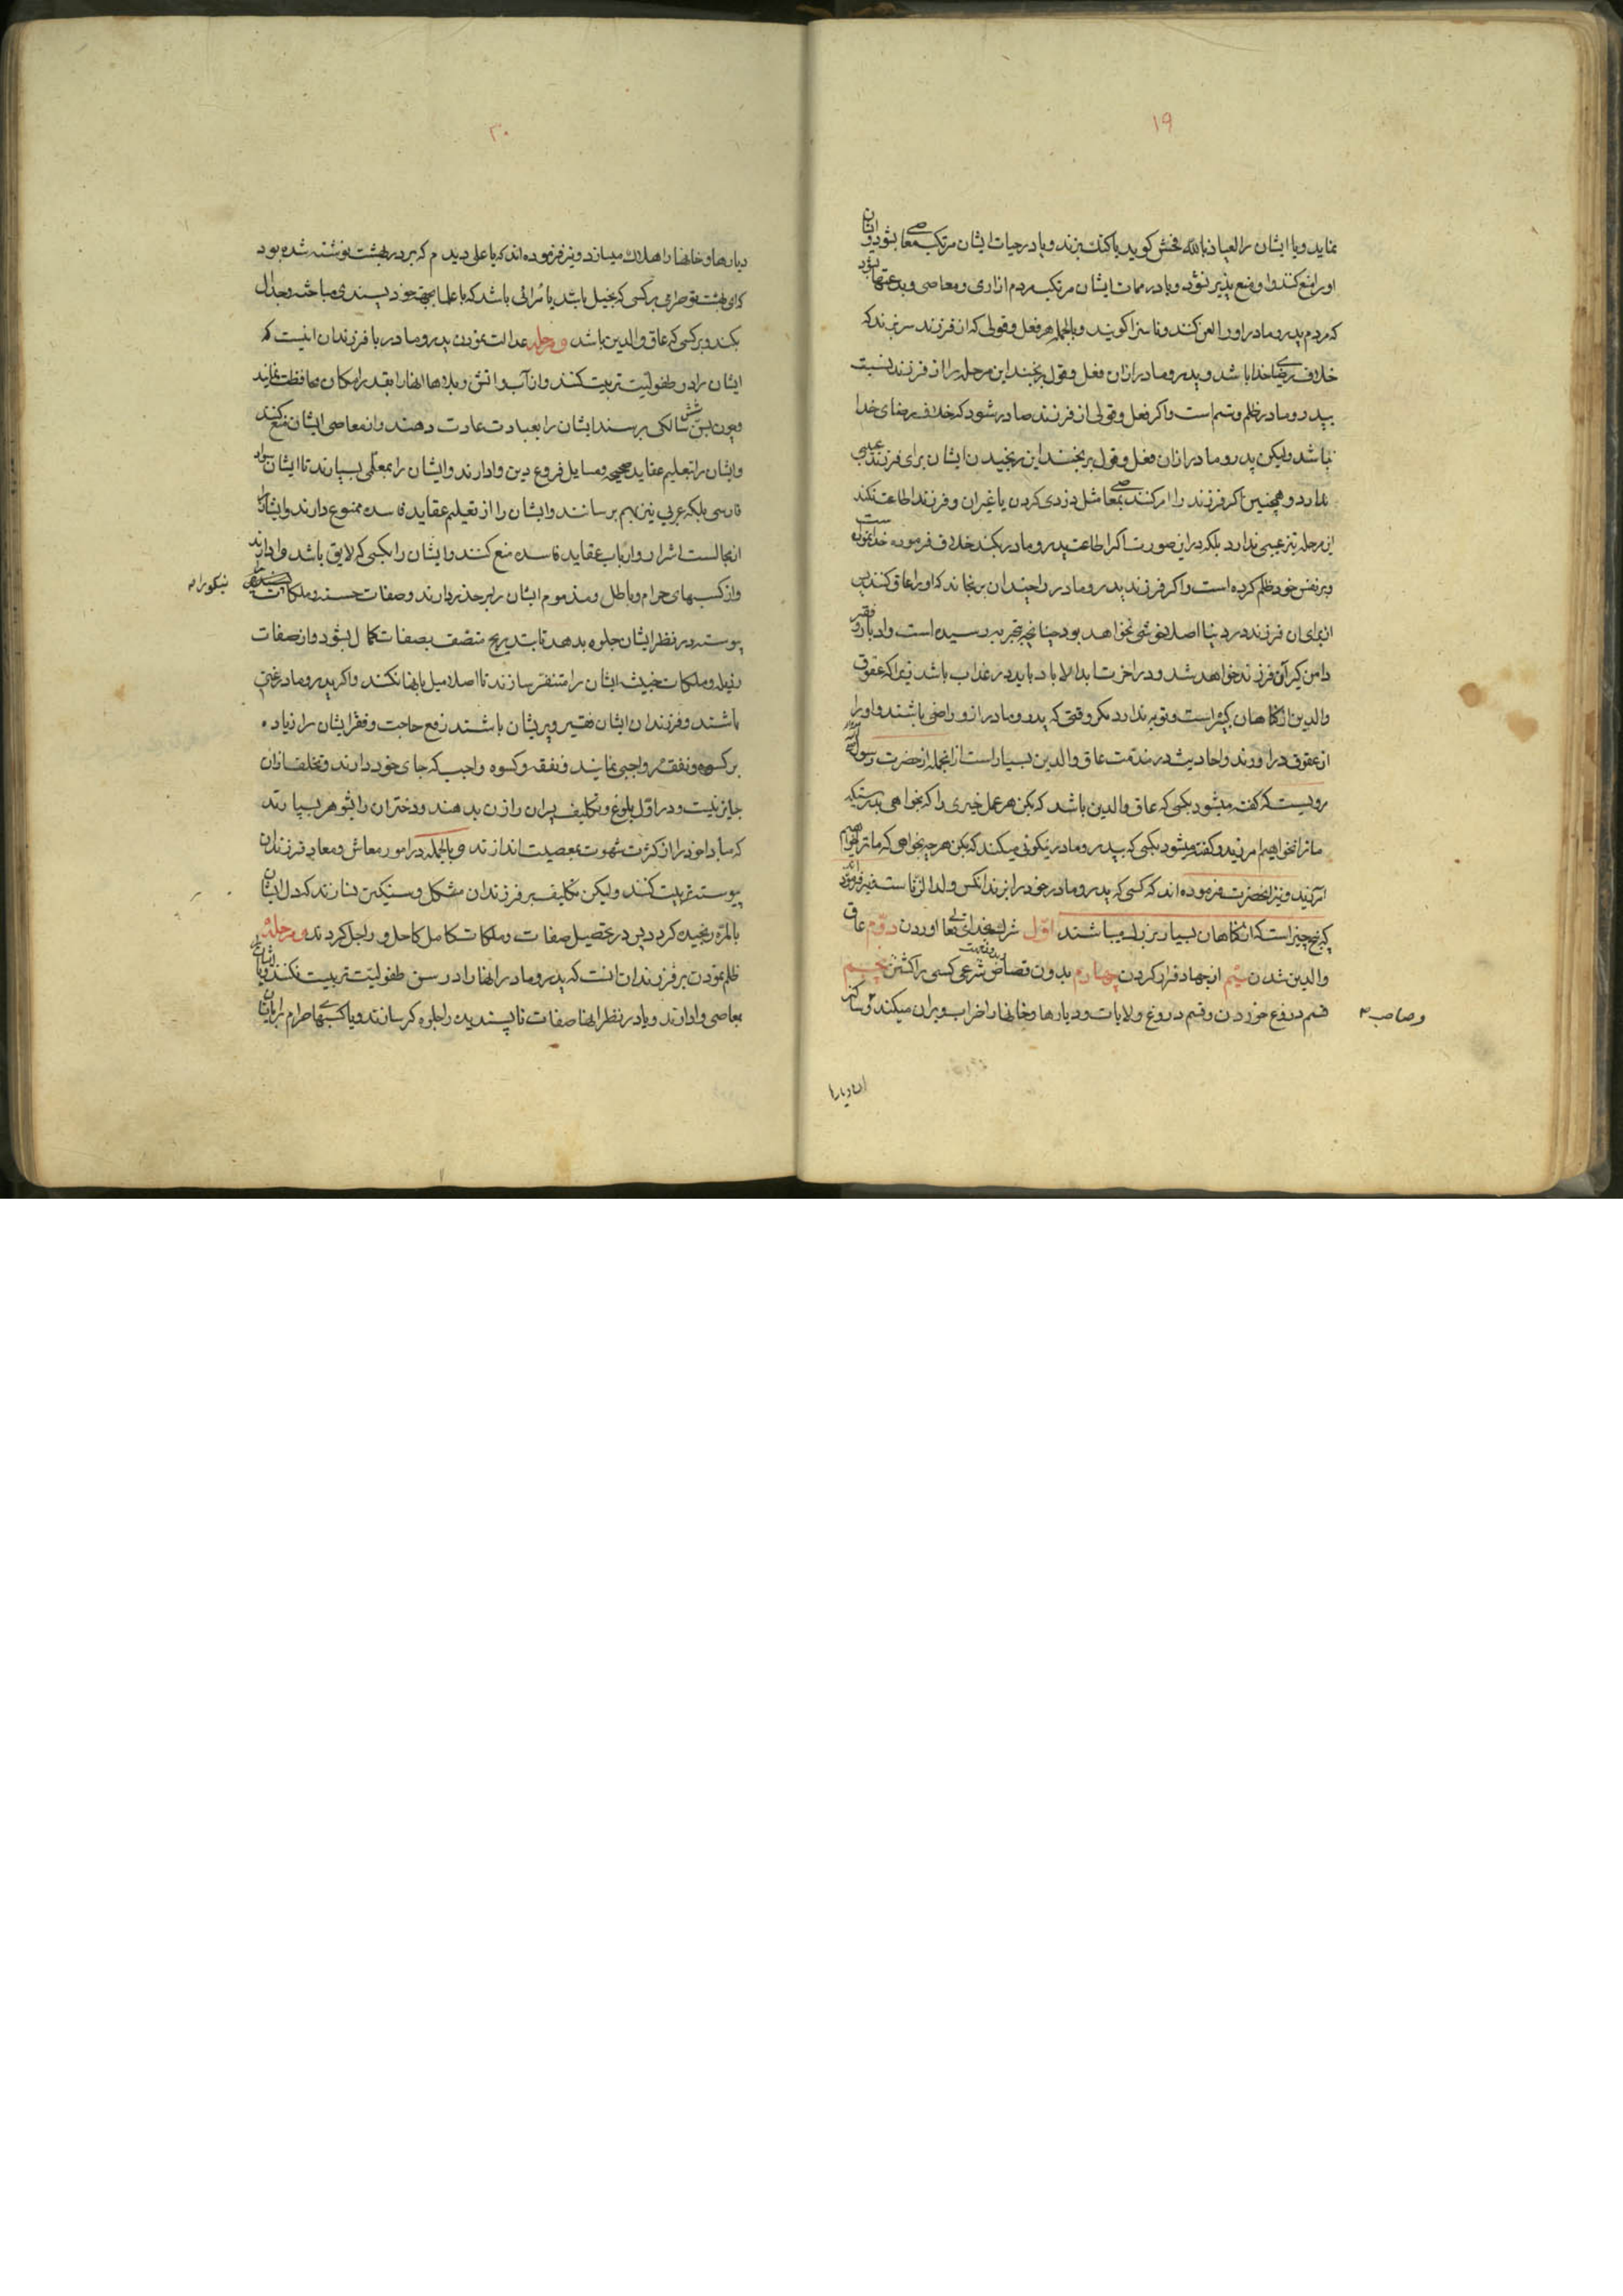 ۱۹
نماید ویا ایشان را العیاذ بالله فحش کوید یا کتک بزند ویا در حیات ایشان مرتکب معاصی بشود وایشان
اورا منع کنند واو منع پذیر نشود ویا در ممات ایشان مرتکب مردم ازاری ومعاصی وبدعتها بشود
که مردم پدر ومادر اورا لعن کنند وناسزا کویند وبالجمله هر فعل وقولی که از فرزند سر بزند که
خلاف رضای خدا باشد وپدر ومادر ازان فعل وقول برنجند این مرحله را از فرزند نسبت
بپدر ومادر ظلم وستم است واکر فعل وقولی از فرزند صادر شود که خلاف رضای خدا
نباشد ولیکن پدر ومادر ازان فعل وقول برنجند این رنجیدن ایشان برای فرزند عیبی
ندارد وهمچنین اکر فرزند را امر کنند بمعاصی مثل دزدی کردن یا غیران وفرزند اطاعت نکند
این مرحله نیز عیبی ندارد بلکه دراین صورت اکر اطاعت پدر ومادر بکند خلاف فرموده خدا نموده است
وبر نفس خود ظلم کرده است واکر فرزند پدر ومادر را چندان برنجاند که اورا عاق کنند پس
از برای ان فرزند در دنیا اصلا خوشی نخواهد بود چنانچه بتجربه رسیده است وادبار وفقر
دامن کیر آن فرزند خواهد شد ودر اخرت ابد الاباد باید در عذاب باشد زیرا که عقوق
والدین از کناهان کبیره است وتوبه ندارد مکر وقتی که پدر ومادر ازو راضی باشند واورا
از عقوق دراورند واحادیث در مذمت عاق والدین بسیار است ازانجمله از حضرت رسول
مرویست که کفته میشود بکسی که عاق والدین باشد که بکن هر عمل خیری را که بخواهی بدرستیکه
ما ترا نخواهیم امرزید وکفته میشود بکسی که بپدر ومادر نیکوئی میکند که بکن هرچه بخواهی که ما ترا خواهیم
امرزید ونیز انحضرت فرموده اند که کسی که پدر ومادر خود را بزند انکس ولد الزنا است ونیز فرموده اند
که پنج چیز است که از کناهان بسیار بزرك میباشند اول شرك بخدای تعالی اوردن دوم عاق
والدین شدن سیم از جهاد فرار کردن چهارم بدون قصاص شرعی کسی را کشتن پنجم
قسم دروغ خوردن وقسم دروغ ولایات ودیارها وخانها را خراب وویران میکند وساکن
وصاحب
ان دیار را
۲۰
دیارها وخانها را هلاك میسازد ونیز فرموده اند که یا علی دیدم که بر در بهشت نوشته شده بود
که ای بهشت تو حرامی بر کسی که بخیل باشد یا مرائی باشد که با علما بجهة خود پسندی مباحثه وجدال
بکند وبر کسی که عاق والدین باشد ومرحله عدالت نمودن پدر ومادر با فرزندان انیست که
ایشان را در طفولیت تربیت کنند واز آب واتش وبلاها انها را بقدر امکان محافظت نمایند
وچون بسن شش سالکی برسند ایشان را بعبادت عادت دهند واز معاصی ایشان منع کنند
وایشان را بتعلیم عقاید صحیحه ومسایل فروع دین وادارند وایشان را بمعلمی بسپارند تا ایشان سواد
فارسی بلکه عربی نیز بهم برسانند وایشان را از تعلیم عقاید فاسده ممنوع دارند وایشان را
از مجالست اشرار وارباب عقاید فاسده منع کنند وایشان را بکسبی که لایق باشد وادارند
واز کسبهای حرام وباطل ومذموم ایشان را بر حذر دارند وصفات حسنه وملکات پسندیده
نیکو را
پیوسته در نظر ایشان جلوه بدهد تا بتدریج متصف بصفات کمال بشود واز صفات
رذیله وملکات خبیثه ایشان را متنفر سازند تا اصلا میل بانها نکنند واکر پدر ومادر غنی
باشند وفرزندان ایشان فقیر وپریشان باشند رفع حاجت وفقر ایشان را زیاده
بر کسوه ونفقه واجبی نمایند ونفقه وکسوه واجب که جای خود دارند وتخلف ازان
جایز نیست ودر اول بلوغ وتکلیف پسران را زن بدهند ودختران را بشوهر بسپارند
که مبادا خود را از کثرت شهوت بمعصیت اندازند وبالجمله در امور معاش ومعاد فرزندان
پیوسته تربیت کنند ولیکن تکلیف بر فرزندان مشکل وسنکین نسازند که دل ایشان
بالمره رنجیده کردد پس در تحصیل صفات وملکات کامل کاهل وراجل کردند ومرحله
ظلم نمودن بر فرزندان انست که پدر ومادر انها را در سن طفولیت تربیت نکنند ویا ایشان را
بمعاصی وادارند ویا در نظر انها صفات ناپسندیده را جلوه کر سازند ویا کسبهای حرام را بایشان